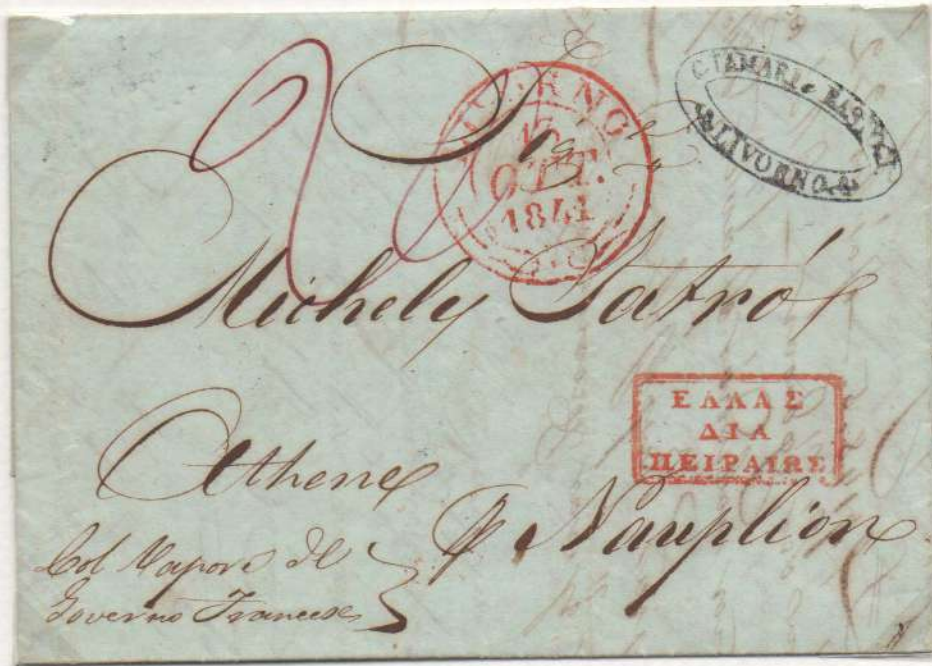 LIVORNO
OTT.
1841
LIVORNO
Michely Iatró
ΕΛΛΑΣ
ΔΙΑ
ΠΕΙΡΑΙΩΣ
Athene
p Nauplión
Col Vapore del
Governo Francese